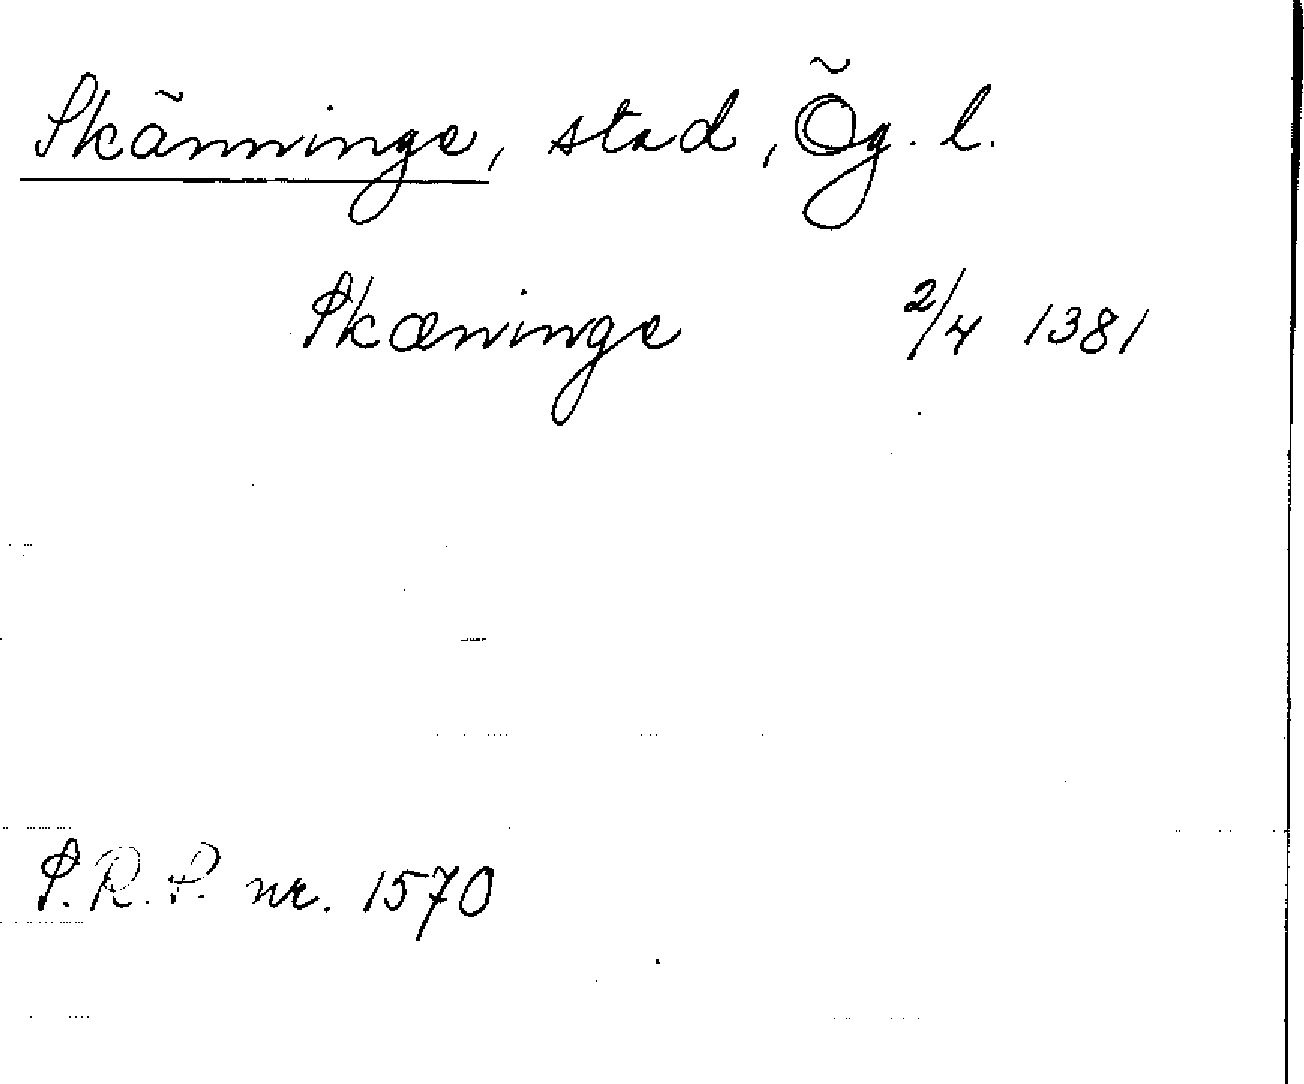 Skänninge, stad, Ög. l.
Skæninge 2/4 1381
S.R.P. nr. 1570